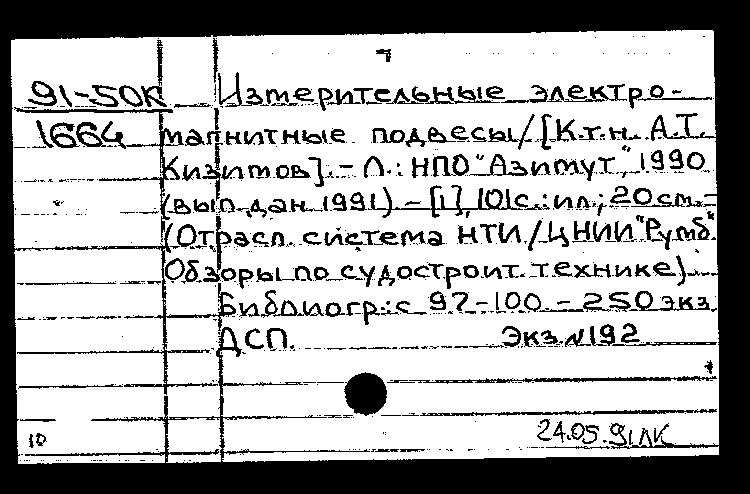 7
91-50К Измерительные электро-
1664 магнитные подвесы/[К.т.н. А.Т.
Кизимов]. - Л.: НПО "Азимут", 1990
(вып.дан 1991). - [1], 101с.:ил.; 20см. -
(Отрасл. система НТИ/ЦНИИ "Румб"
Обзоры по судостроит. технике).
Библиогр.: с 97-100. - 250 экз
ДСП. Экз.№192
24.05.91ЛК
10